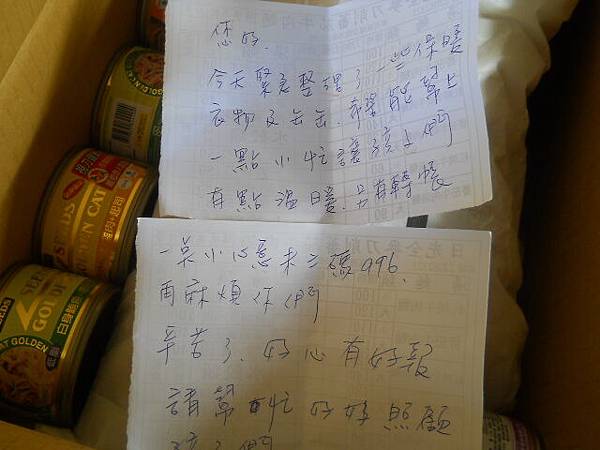 您好.
今天緊急整理了一些保暖
衣物及缶缶.希望能幫上
一點小忙讓孩子們
有點溫暖.另有轉帳
一點小心意末三碼996.
再麻煩你們
辛苦了.好心有好報
請幫忙好好照顧
孩子們
SEEDS
GOLDEN CAT
雞肉+起司
SEEDS
GOLDEN
白身鮪魚
CAT GOLDEN